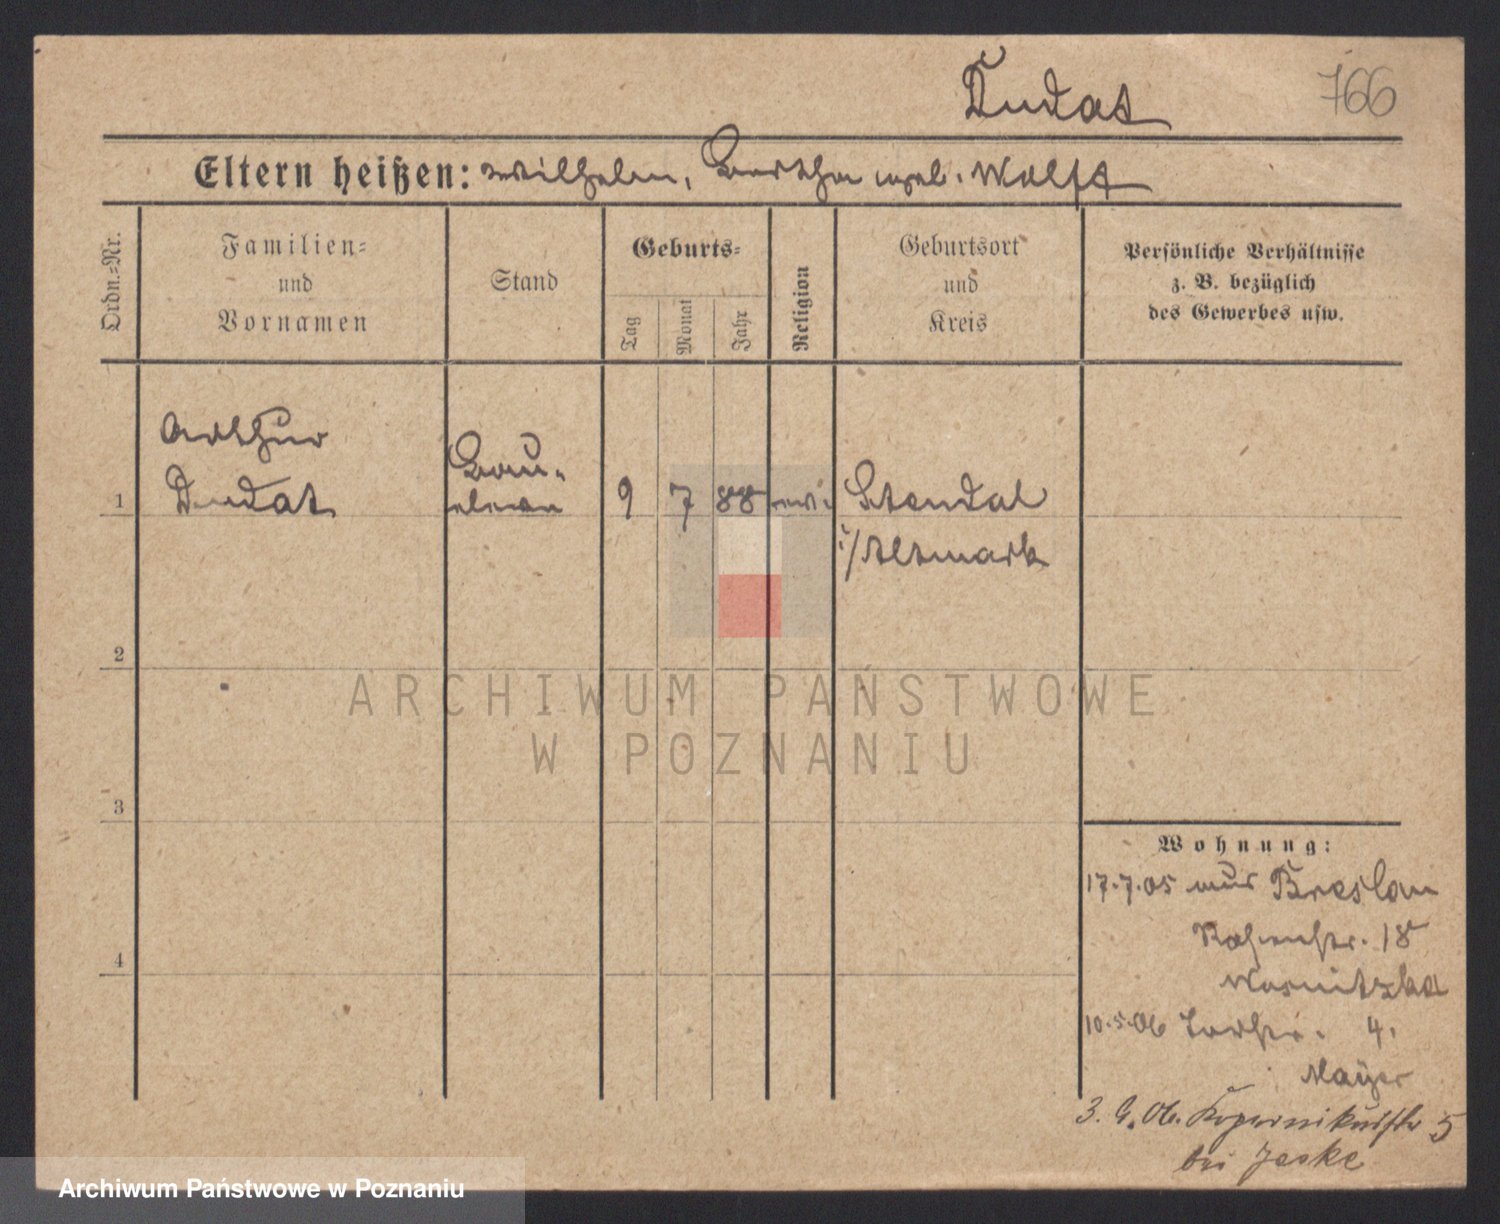 Dudat
766
Eltern heißen: Wilhelm, Bertha geb. Wolff
Ordn.=Nr.
Familien=
und
Vornamen
Stand
Geburts=
Tag
Monat
Jahr
Religion
Geburtsort
und
Kreis
Persönliche Verhältnisse
z. B. bezüglich
des Gewerbes usw.
Arthur
Dudat
Bau=
eleve
1
9
7
88
ev.
Stendal
i/Altmark
2
ARCHIWUM PAŃSTWOWE
W POZNANIU
3
4
Wohnung:
17.7.05 aus Breslau
18
Wosnitzka
10.5.06 Torstr. 4.
Mayer
3. 9. 06. Kopernikusstr 5
bei Jeske
Archiwum Państwowe w Poznaniu